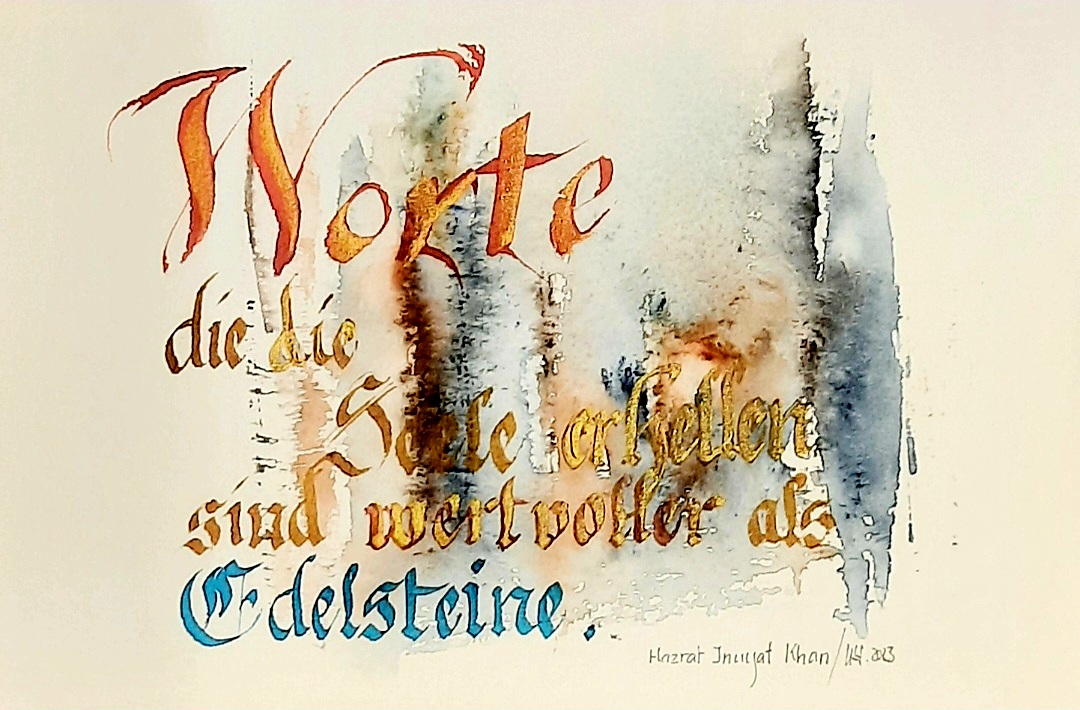 Worte
die die
Seele erhellen
sind wertvoller als
Edelsteine.
Hazrat Inayat Khan